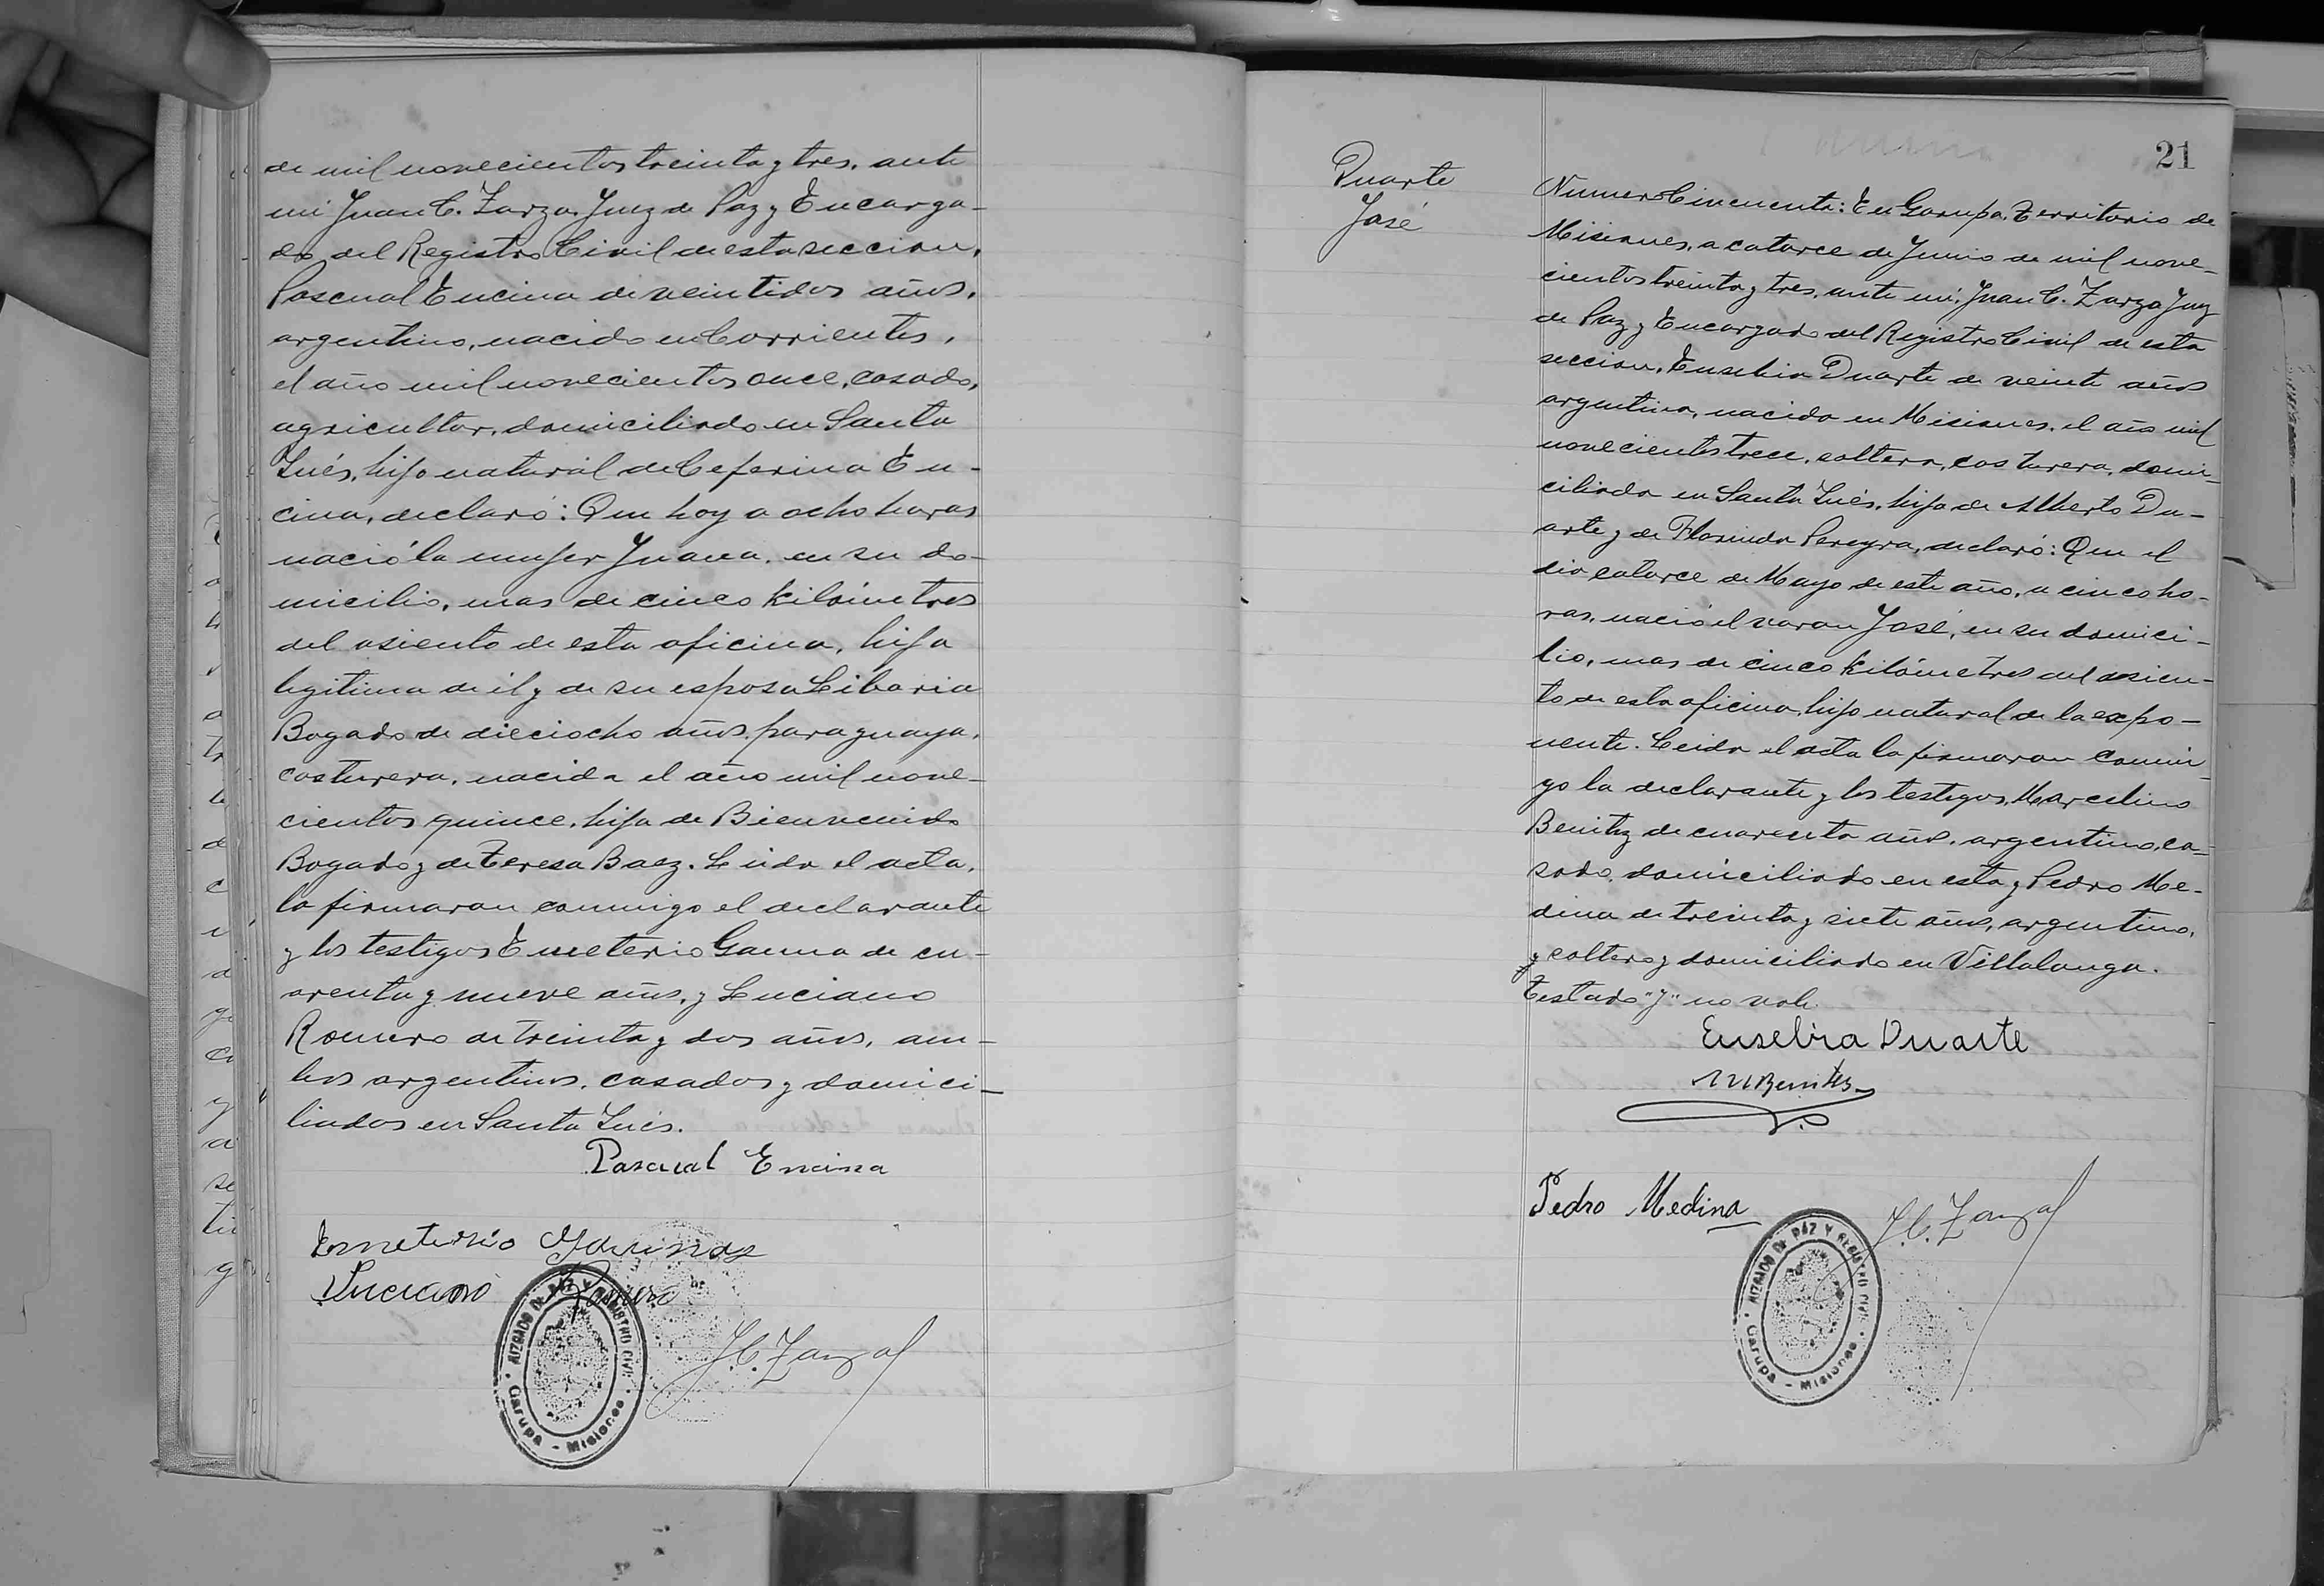 de mil novecientos treinta y tres, ante
mi Juan C. Zarza, Juez de Paz y Encarga-
do del Registro Civil de esta seccion,
Pascual Encina de veintidos años,
argentino, nacido en Corrientes,
el año mil novecientos once, casado,
agricultor, domiciliado en Santa
Inés, hijo natural de Ceferina En-
cina, declaró: Que hoy a ocho horas
nació la mujer Juana, en su do-
micilio, mas de cinco kilómetros
del asiento de esta oficina, hija
legitima de él y de su esposa Liboria
Bogado de dieciocho años, paraguaya,
costurera, nacida el año mil nove-
cientos quince, hija de Bienvenido
Bogado y de Teresa Baez. Leida el acta,
la firmaron conmigo el declarante
y los testigos Emeterio Gauna de cu-
arenta y nueve años, y Luciano
Romero de treinta y dos años, am-
bos argentinos, casados y domici-
liados en Santa Inés.
Pascual Encina
Emeterio
Luciano Romero
J.C. Zarza
JUZGADO DE PAZ Y REGISTRO CIVIL
Garupa - Misiones
21
Duarte
José
Numero Cincuenta: En Garupa, Territorio de
Misiones, a catorce de Junio de mil nove-
cientos treinta y tres, ante mi, Juan C. Zarza Juez
de Paz y Encargado del Registro Civil de esta
seccion, Eusebia Duarte de veinte años
argentina, nacida en Misiones, el año mil
novecientos trece, soltera, costurera, domi-
ciliada en Santa Inés, hija de Alberto Du-
arte y de Florinda Pereyra, declaró: Que el
dia catorce de Mayo de este año, a cinco ho-
ras, nació el varon José, en su domici-
lio, mas de cinco kilómetros del asien-
to de esta oficina, hijo natural de la expo-
nente. Leida el acta la firmaron conmi-
go la declarante y los testigos, Marcelino
Benitez de cuarenta años, argentino, ca-
sado, domiciliado en esta y Pedro Me-
dina de treinta y siete años, argentino,
y soltero y domiciliado en Villalonga.
Testado "y" no vale.
Eusebia Duarte
M Benitez
Pedro Medina
J.C. Zarza
JUZGADO DE PAZ Y REGISTRO CIVIL
Garupa - Misiones